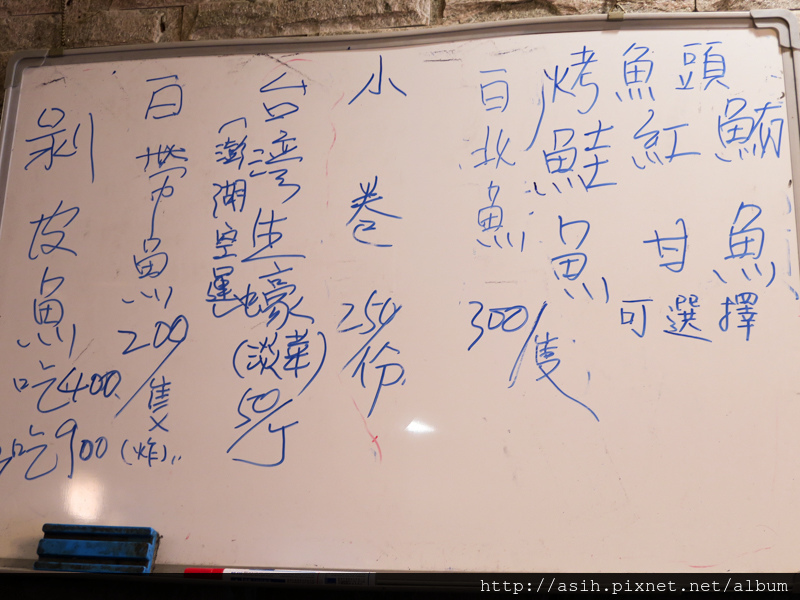 烤魚頭
鮭 紅 鮪
魚 甘 魚
可選擇
白北魚 300/隻
小卷 250/份
台灣生蠔(淡菜) 50/
(澎湖空運
白帶魚 200/隻(炸)
剝皮魚 吃400
吃900
http://asih.pixnet.net/album